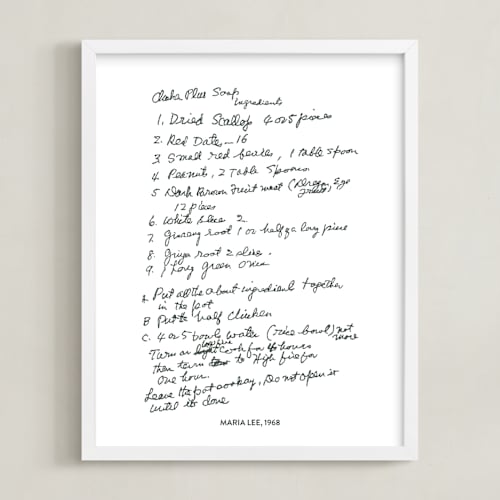 Plus Soup
Ingredients
1. Dried Scallop 4 or 5 pieces
2. Red Date – 16
3. Small red beades, 1 table spoon
4. Peanuts, 2 Table Spoons
5 Dark Brown Fruit meat (Dragon Eye
12 pieces
6. White 2
7. Ginseng root 1 or half of a long piece
8. root 2 slice.
9. 1 Long green
A Put all the about ingredient together
in the pot
B Put the half chicken
C. 4 or 5 bowls water (rice bowl) not
more
Turn on low fire Cook for 4 hours
then turn to High fire for
One hour.
Leave the pot , Do not open it
until it's done
MARIA LEE, 1968